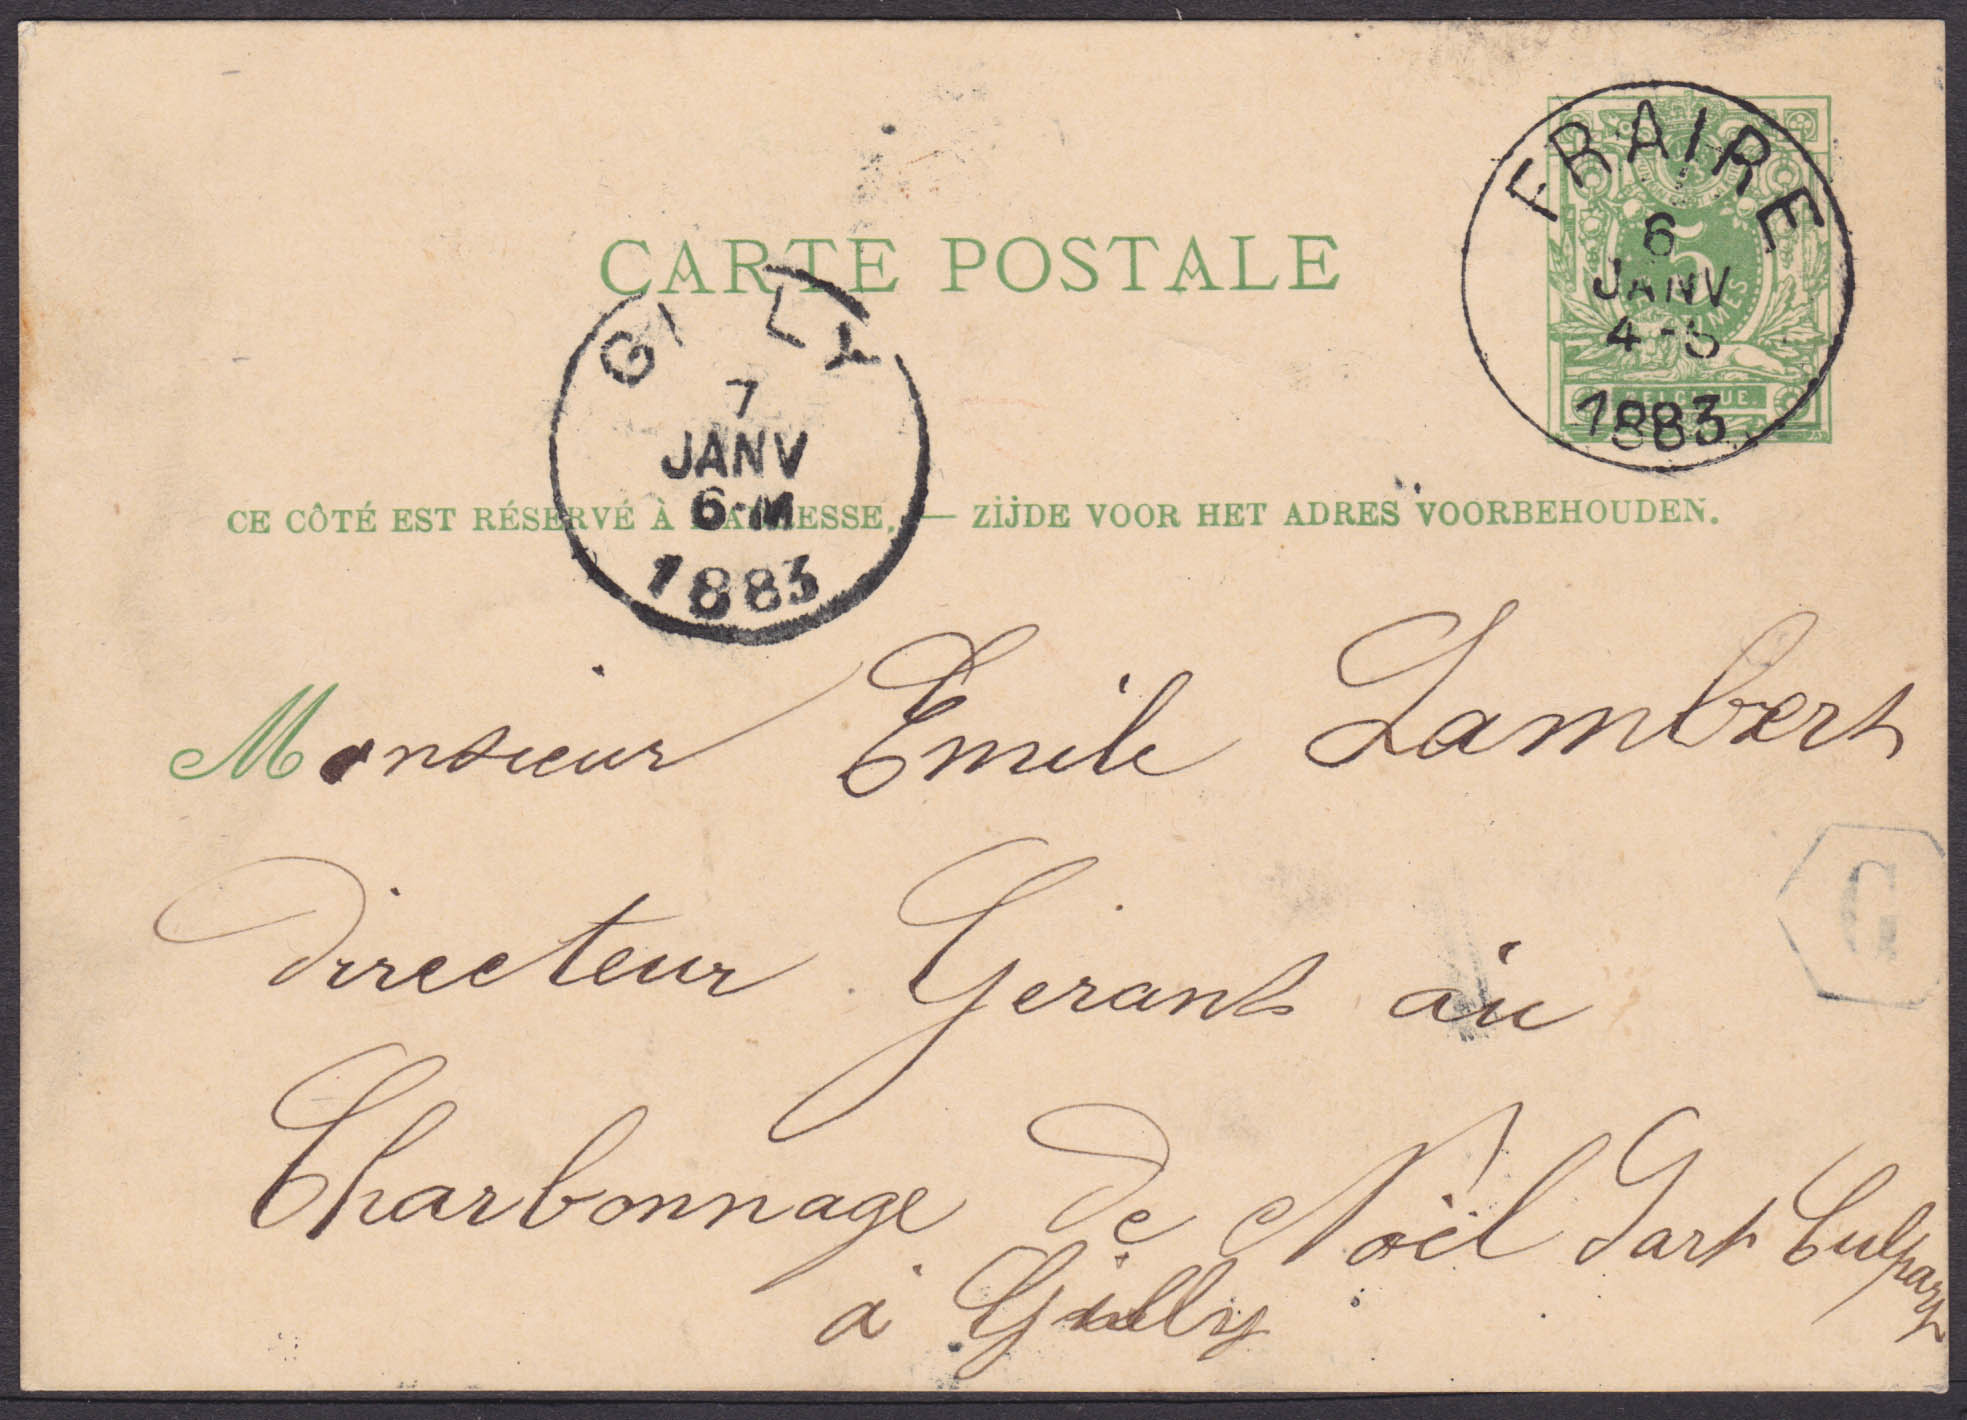 CARTE POSTALE
FRAIRE
6
JANV
4-5
1883
5
BELGIQUE.
GILLY
7
JANV
6-M
1883
CE CÔTÉ EST RÉSERVÉ À L'ADRESSE. — ZIJDE VOOR HET ADRES VOORBEHOUDEN.
Monsieur Emile Lambert
Directeur Gerant au
G
Charbonnage de Noël Sart Culpart
à Gilly